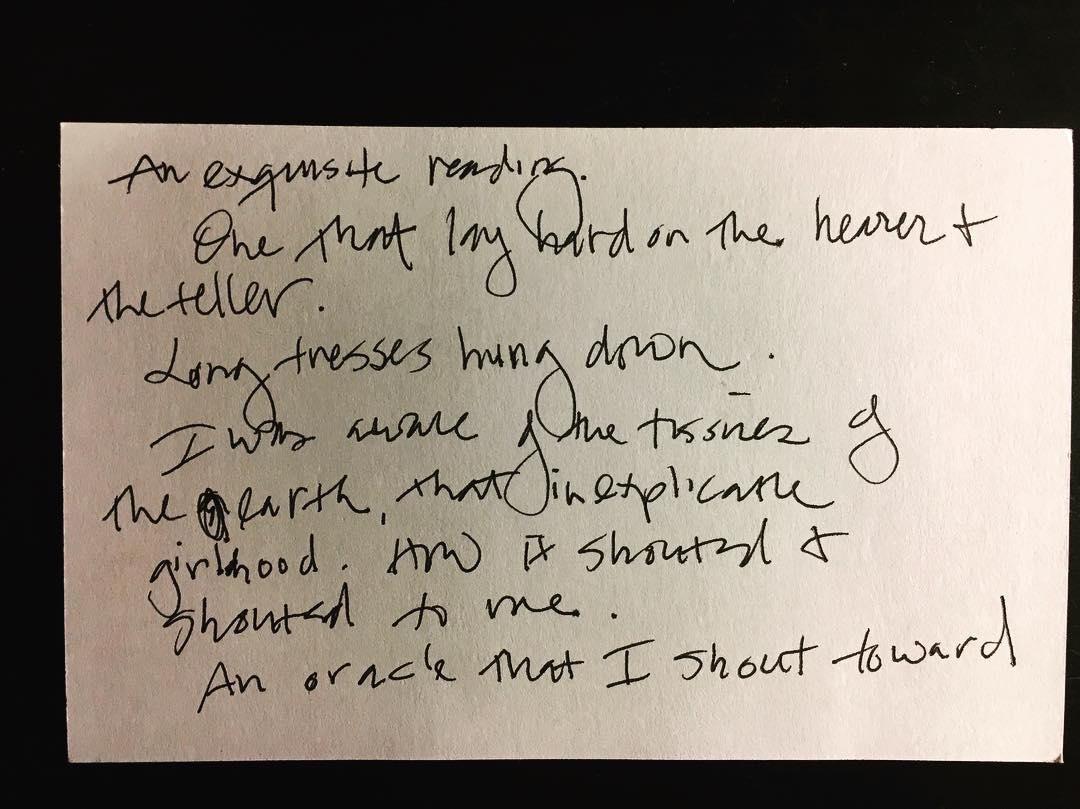 An exquisite reading.
One that lay hard on the hearer +
the teller.
Long tresses hung down.
I was aware of the tissues of
the earth, that inexplicable
girlhood. How it shouted +
shouted to me.
An oracle that I shout toward